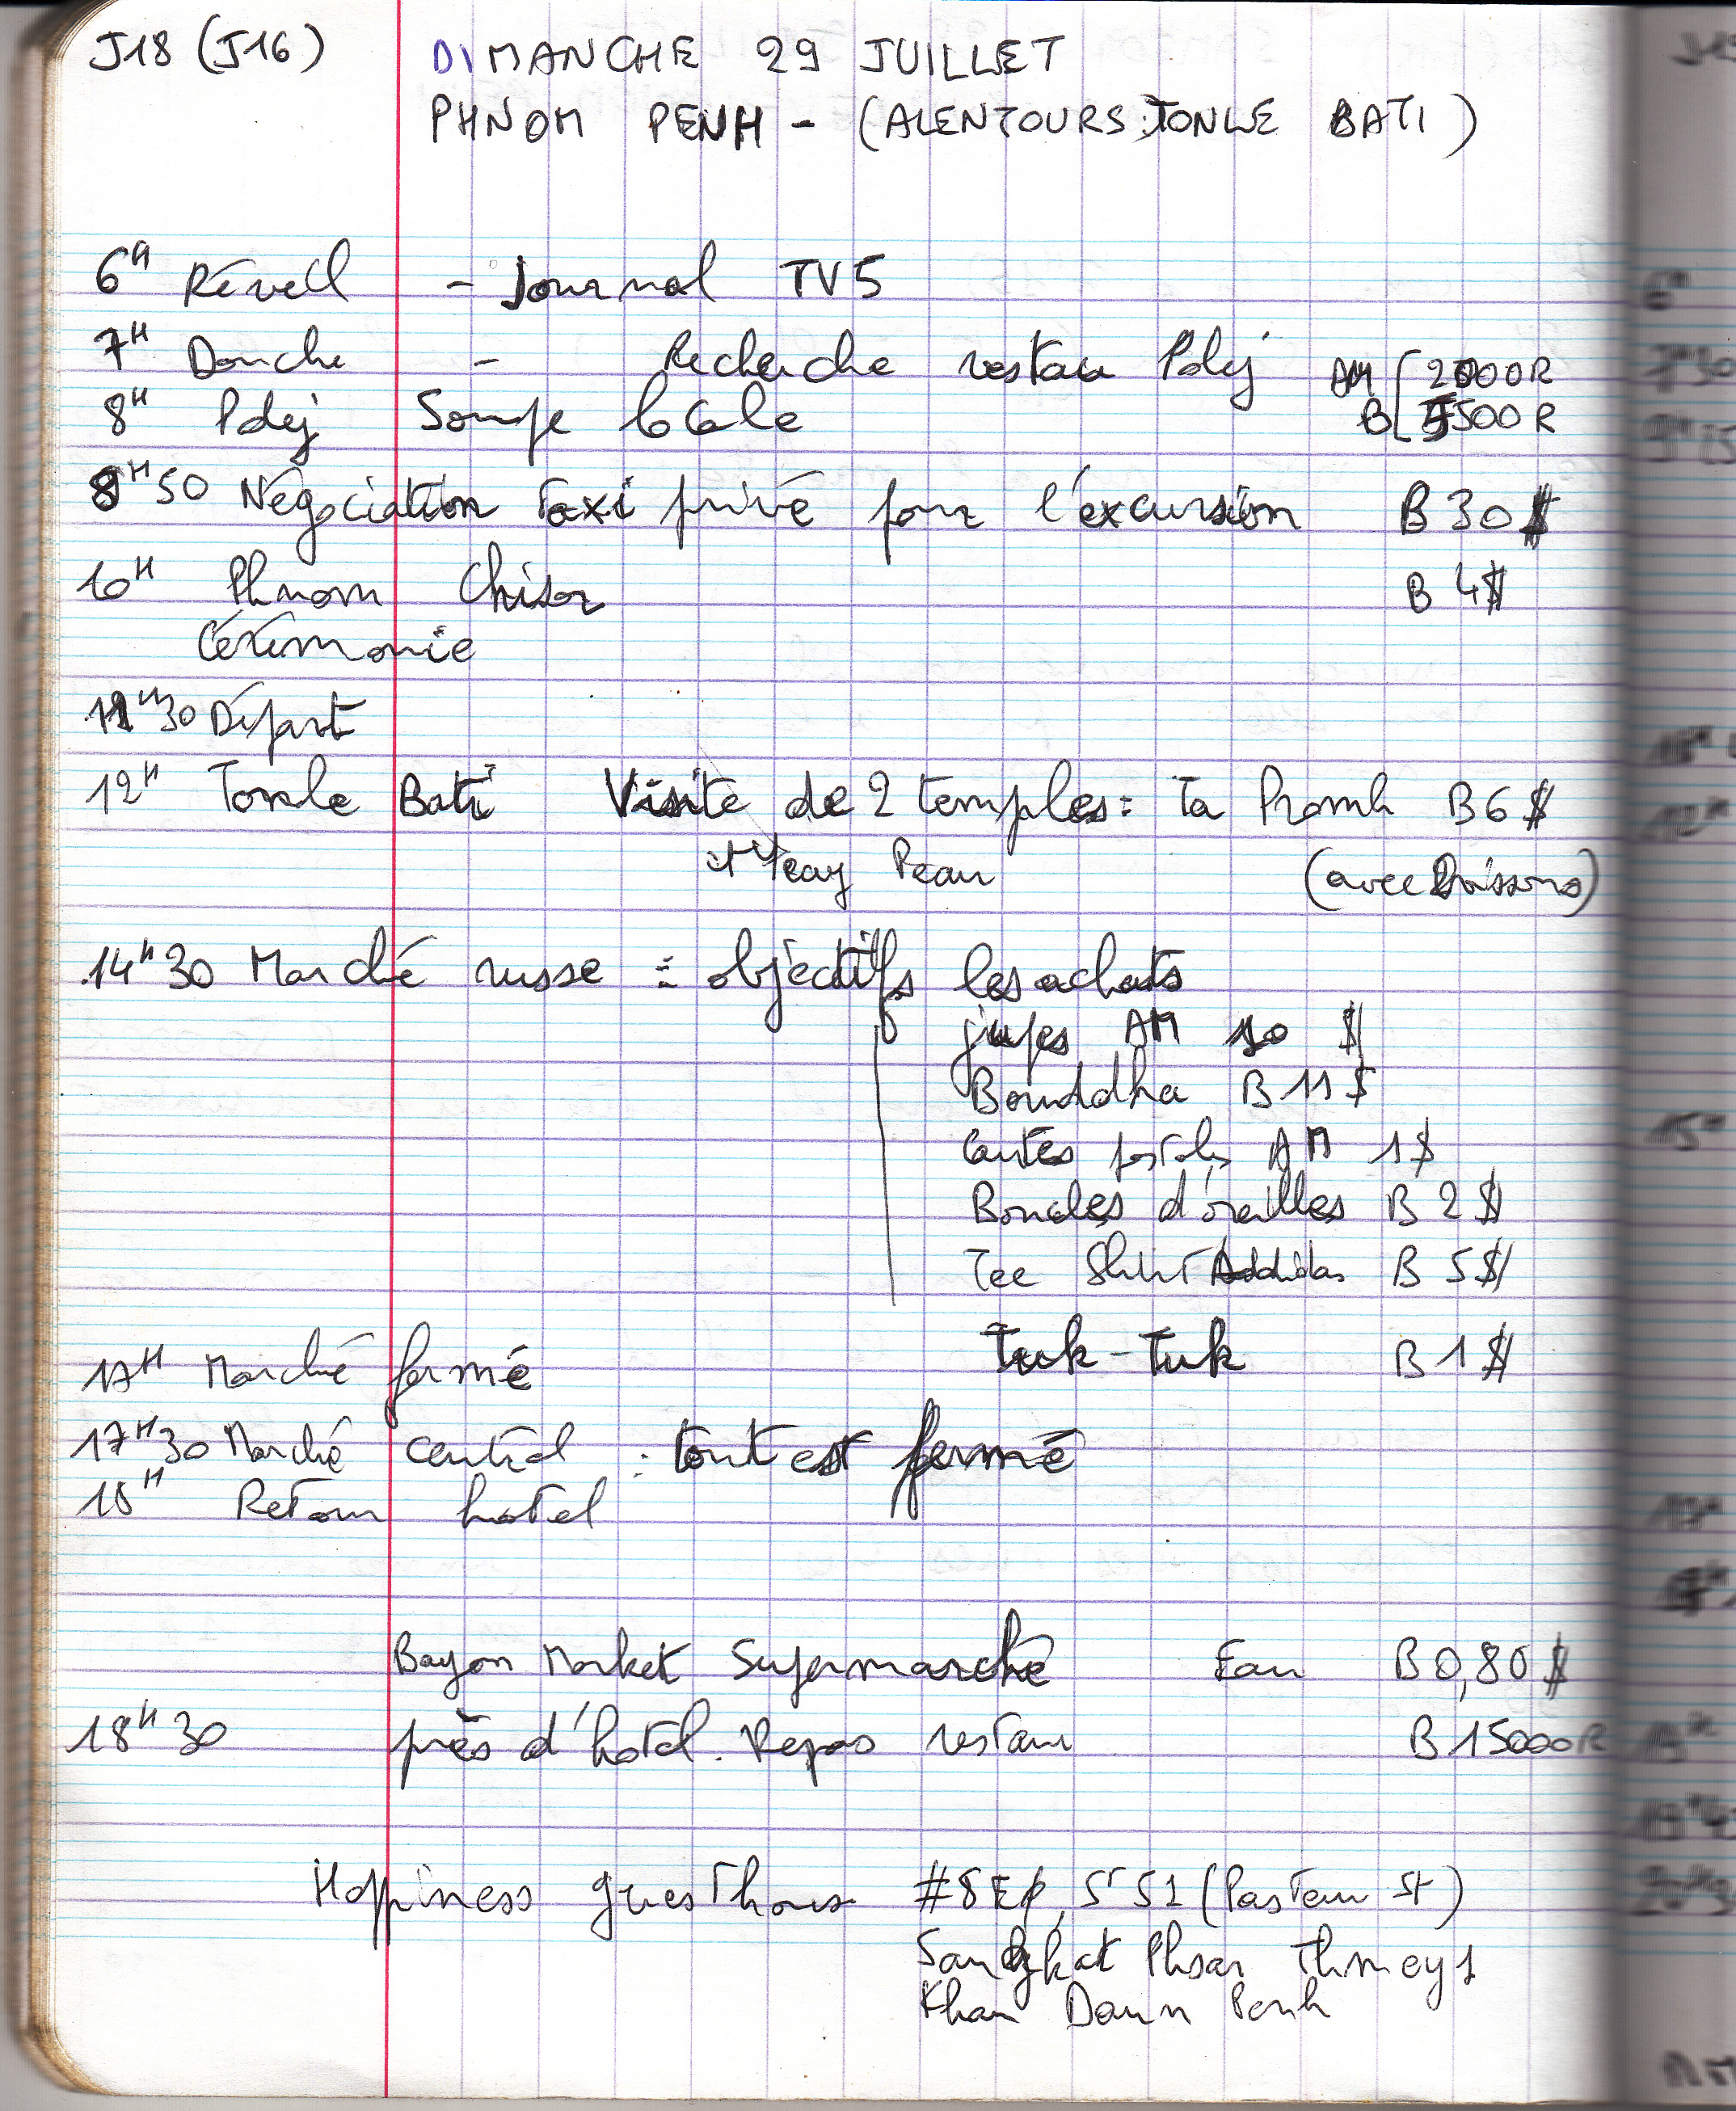 J18 (J16) DIMANCHE 29 JUILLET
PHNOM PENH - (ALENTOURS : TONLE BATI)
6H Réveil - Journal TV5
7H Douche - Recherche restau Pdej AM [ 2000R
8H Pdej Soupe locale B [ 5500 R
8H50 Négociation Taxi privé pour l'excursion B 30 $
10H Phnom Chisor B 4$
Cérémonie
11H30 Départ
12H Tonle Bati Visite de 2 temples : Ta Promh B 6 $
et Yeay Peau (avec Boissons)
14H30 Marché russe : objectifs les achats
jupes AM 10 $
Bouddha B 11 $
Cartes postales AM 1 $
Boucles d'oreilles B 2 $
Tee Shirt Addidas B 5 $
Tuk-Tuk B 1 $
17H Marché fermé
17H30 Marché central : tout est fermé
18H Retour hotel
Bayon Market Supermarché Eau B 0,80 $
18H30 près d'hotel. Repas restau B 15000R
Happiness guesthouse #8Ep, ST 51 (Pasteur St)
Sangkat Phsar Thmey 1
Khan Daun Penh